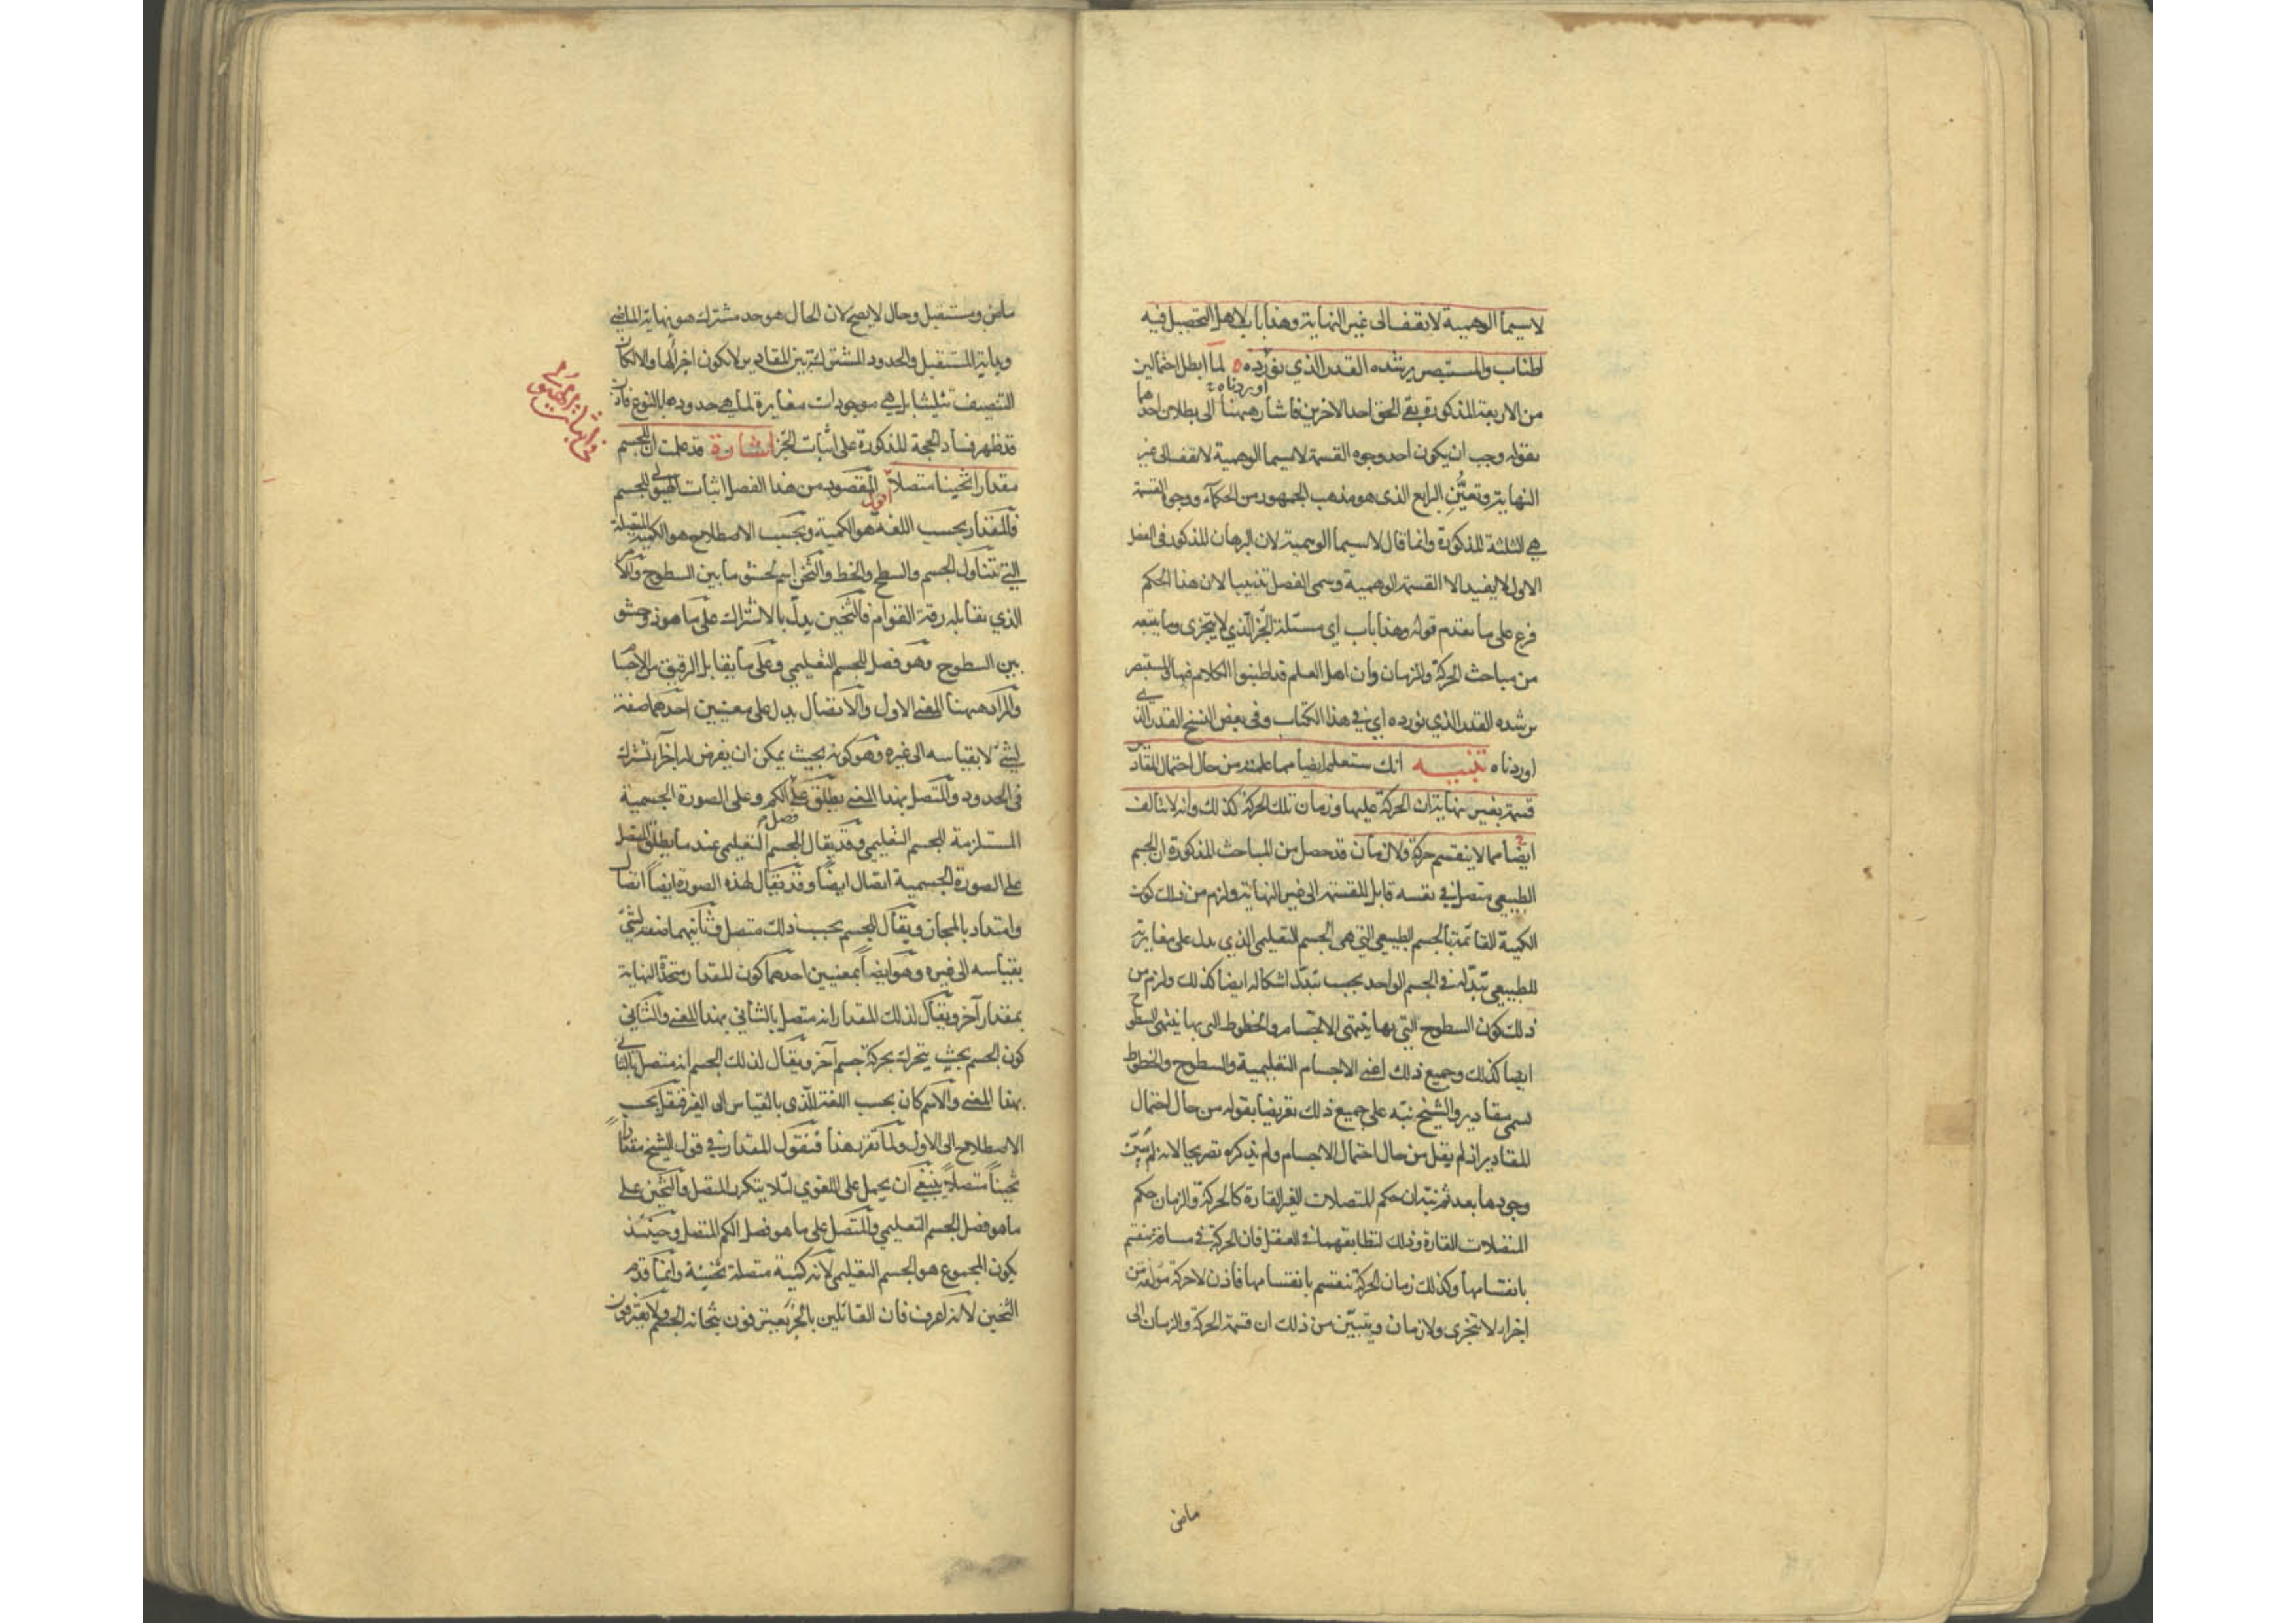 لاسيما الوهمية لا تقف الى غير النهاية وهذا باب لاهل التحصيل فيه
اطناب والمستبصر يرشده القدر الذي نورده لما ابطل احتمالين
اوردناه
من الاربعة المذكورة بقي الحق احد الاخرين فاشار ههنا الى بطلان احدهما
بقوله وجب ان يكون احد وجوه القسمة لاسيما الوهمية لا تقف الى غير
النهاية وتعيُّن الرابع الذي هو مذهب الجمهور من الحكماء ووجوه القسمة
هي الثلثة المذكورة وانما قال لاسيما الوهمية لان البرهان المذكور في الفصل
الاول لا يفيد الا القسمة الوهمية وسمى الفصل تذنيبا لان هذا الحكم
فرع على ما تقدم قوله وهذا باب اي مسئلة الجزء الذي لا يتجزى وما يتبعه
من مباحث الحركة والزمان وان اهل العلم قد اطنبوا الكلام فيها والمستبصر
يرشده القدر الذي نورده اي في هذا الكتاب وفي بعض النسخ القدر الذي
اوردناه تنبيه انك ستعلم ايضا مما علمته من حال احتمال المقادير
قسمة بغير نهاية ان الحركة عليها وزمان تلك الحركة كذلك وانه لا تتالف
ايضا مما لا ينقسم حركة ولا زمان قد حصل من المباحث المذكورة ان الجسم
الطبيعي متصل في نفسه قابل للقسمة الى غير النهاية ولزم من ذلك كون
الكمية القائمة بالجسم الطبيعي التي هي الجسم التعليمي الذي يدل على مغايرته
للطبيعي تبدّله في الجسم الواحد بحسب تبدّل اشكاله ايضا كذلك ولزم من
ذلك كون السطوح التي بها ينتهي الاجسام والخطوط التي بها ينتهي السطوح
ايضا كذلك وجميع ذلك اعني الاجسام التعليمية والسطوح والخطوط
يسمى مقادير والشيخ نبّه على جميع ذلك تعريضا بقوله من حال احتمال
المقادير اذ لم يقل من حال احتمال الاجسام ولم يذكره تصريحا لانه لم يبيّن
وجودها بعد ثم نبّه ان حكم المتصلات الغير القارة كالحركة والزمان حكم
المتصلات القارة وذلك لتطابقهما في العقل فان الحركة في مسافة تنقسم
بانقسامها وكذلك زمان الحركة تنقسم بانقسامها فاذن لا حركة مؤلفة من
اجزاء لا تتجزى ولا زمان ويتبيّن من ذلك ان قسمة الحركة والزمان الى
ماض
ماض ومستقبل وحال لا يصح لان الحال هو حد مشترك هو نهاية الماضي
وبداية المستقبل والحدود المشتركة بين المقادير لا تكون اجزاءً لها والا لكان
التنصيف تثليثا بل هي موجودات مغايرة لما هي حدوده بالنوع فاذن
قد ظهر فساد الحجة المذكورة على اثبات الجزء اشارة قد علمت ان للجسم
مقدارا ثخينا متصلا اقول المقصود من هذا الفصل اثبات الهيولى للجسم
فالمقدار بحسب اللغة هو الكمية وبحسب الاصطلاح هو الكمية المتصلة
التي تتناول الجسم والسطح والخط والثخن اسم لحشو ما بين السطوح
الذي يقابله رقة القوام فالثخين يدل بالاشتراك على ما هو ذو حشو
بين السطوح وهو فصل للجسم التعليمي وعلى ما يقابل الرقيق من الاجسام
والمراد ههنا المعنى الاول والاتصال يدل على معنيين احدهما صفة
لشئ لا بقياسه الى غيره وهو كونه بحيث يمكن ان يفرض له اجزاء تشترك
في الحدود والمتصل بهذا المعنى يطلق على فصل الكم وعلى الصورة الجسمية
المستلزمة للجسم التعليمي وقد يقال للجسم التعليمي عند ما يطلق المتصل
على الصورة الجسمية اتصال ايضا وقد يقال لهذه الصورة ايضا اتصال
وامتداد بالمجاز ويقال للجسم بحسب ذلك متصل وثانيهما صفة لشئ
بقياسه الى غيره وهو ايضا بمعنيين احدهما كون المقدار متحد النهاية
بمقدار آخر ويقال لذلك المقدار انه متصل بالثاني بهذا المعنى والثاني
كون الجسم بحيث يتحرك بحركة جسم آخر ويقال لذلك الجسم انه متصل بالثاني
بهذا المعنى والاسم كان بحسب اللغة للذي بالقياس الى الغير فنقل بحسب
الاصطلاح الى الاول ولما تقرر هذا فنقول المقدار في قول الشيخ مقدارا
ثخيناً متصلاً ينبغي ان يحمل على اللغوي لئلا يتكرر المتصل والثخين على
ما هو فصل الجسم التعليمي والمتصل على ما هو فصل الكم المتصل وحينئذ
يكون المجموع هو الجسم التعليمي لانه كمية متصلة ثخينة وانما قدم
الثخين لانه اعرف فان القائلين بالجزء يعترفون بثخانة الجسم ولا يعترفون
في اثبات الهيولى